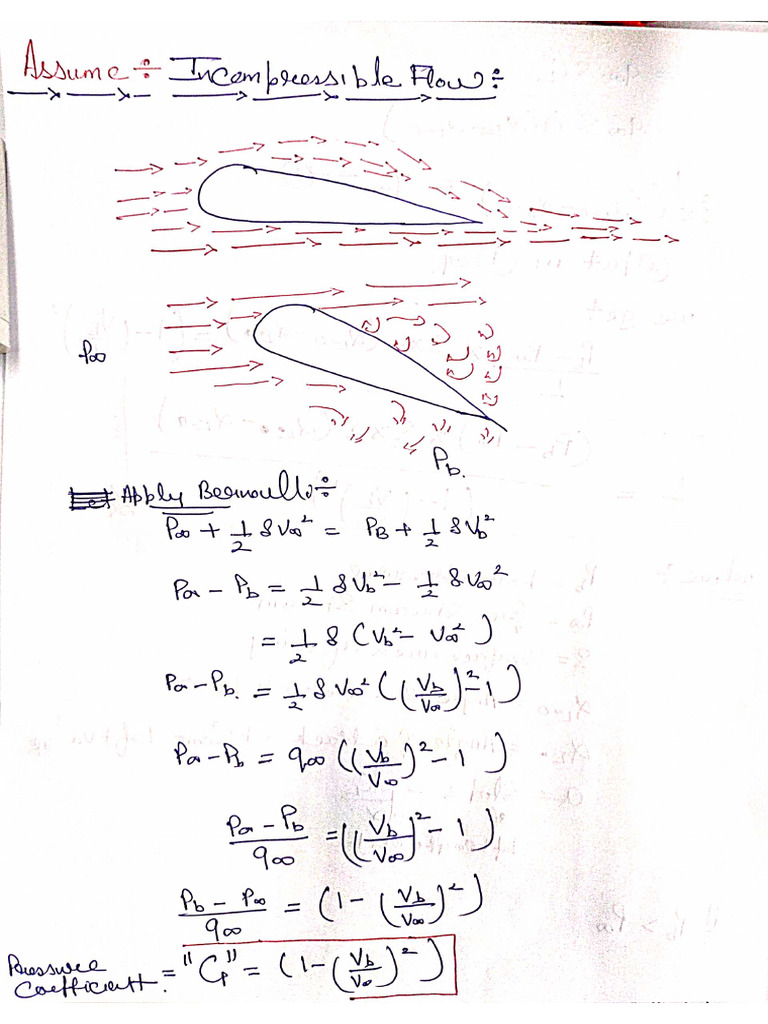 Assume ÷ Incompressible Flow ÷
P∞
Pb.
Apply Bernoulli ÷
P∞ + 1/2 ρV∞² = PB + 1/2 ρVb²
P∞ - Pb = 1/2 ρVb² - 1/2 ρV∞²
= 1/2 ρ (Vb² - V∞²)
P∞ - Pb. = 1/2 ρV∞² ((Vb/V∞)² - 1)
P∞ - Pb = q∞ ((Vb/V∞)² - 1)
P∞ - Pb / q∞ = ((Vb/V∞)² - 1)
Pb - P∞ / q∞ = (1 - (Vb/V∞)²)
Pressure Coefficient. = "CP" = (1 - (Vb/V∞)²)